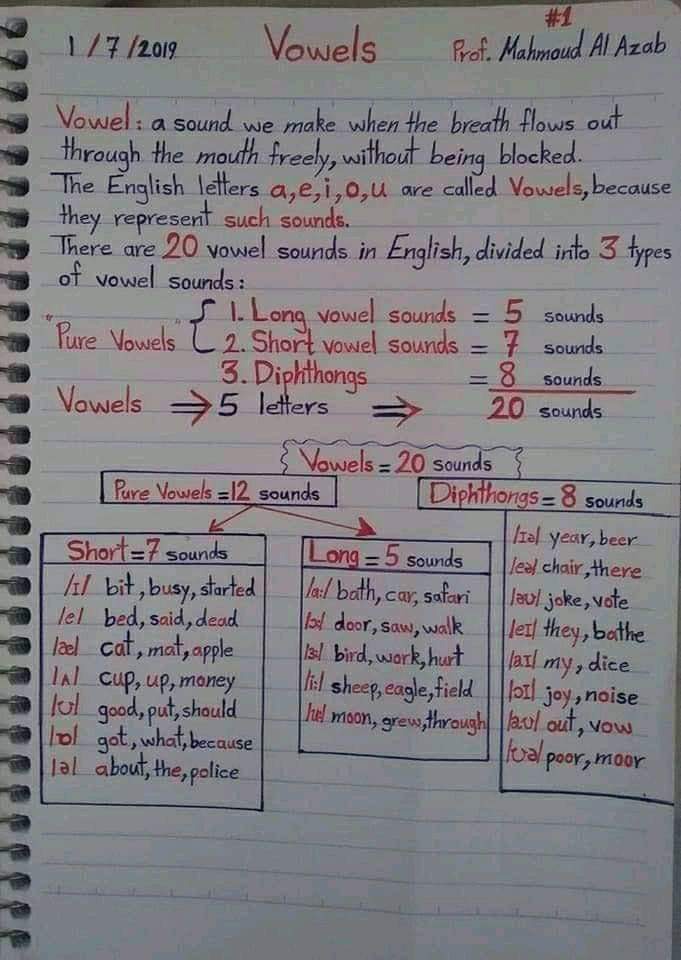 #1
1/7/2019 Vowels Prof. Mahmoud Al Azab
Vowel: a sound we make when the breath flows out
through the mouth freely, without being blocked.
The English letters a,e,i,o,u are called Vowels, because
they represent such sounds.
There are 20 vowel sounds in English, divided into 3 types
of vowel sounds:
1. Long vowel sounds = 5 sounds
"Pure Vowels" 2. Short vowel sounds = 7 sounds
3. Diphthongs = 8 sounds
Vowels ⇒ 5 letters ⇒ 20 sounds
Vowels = 20 sounds
Pure Vowels = 12 sounds
Short = 7 sounds
/ɪ/ bit, busy, started
/e/ bed, said, dead
/æ/ cat, mat, apple
/ʌ/ cup, up, money
/ʊ/ good, put, should
/ɒ/ got, what, because
/ə/ about, the, police
Long = 5 sounds
/a:/ bath, car, safari
/ɔ:/ door, saw, walk
/ɜ:/ bird, work, hurt
/i:/ sheep, eagle, field
/u:/ moon, grew, through
Diphthongs = 8 sounds
/ɪə/ year, beer
/eə/ chair, there
/əʊ/ joke, vote
/eɪ/ they, bathe
/aɪ/ my, dice
/ɔɪ/ joy, noise
/aʊ/ out, vow
/ʊə/ poor, moor